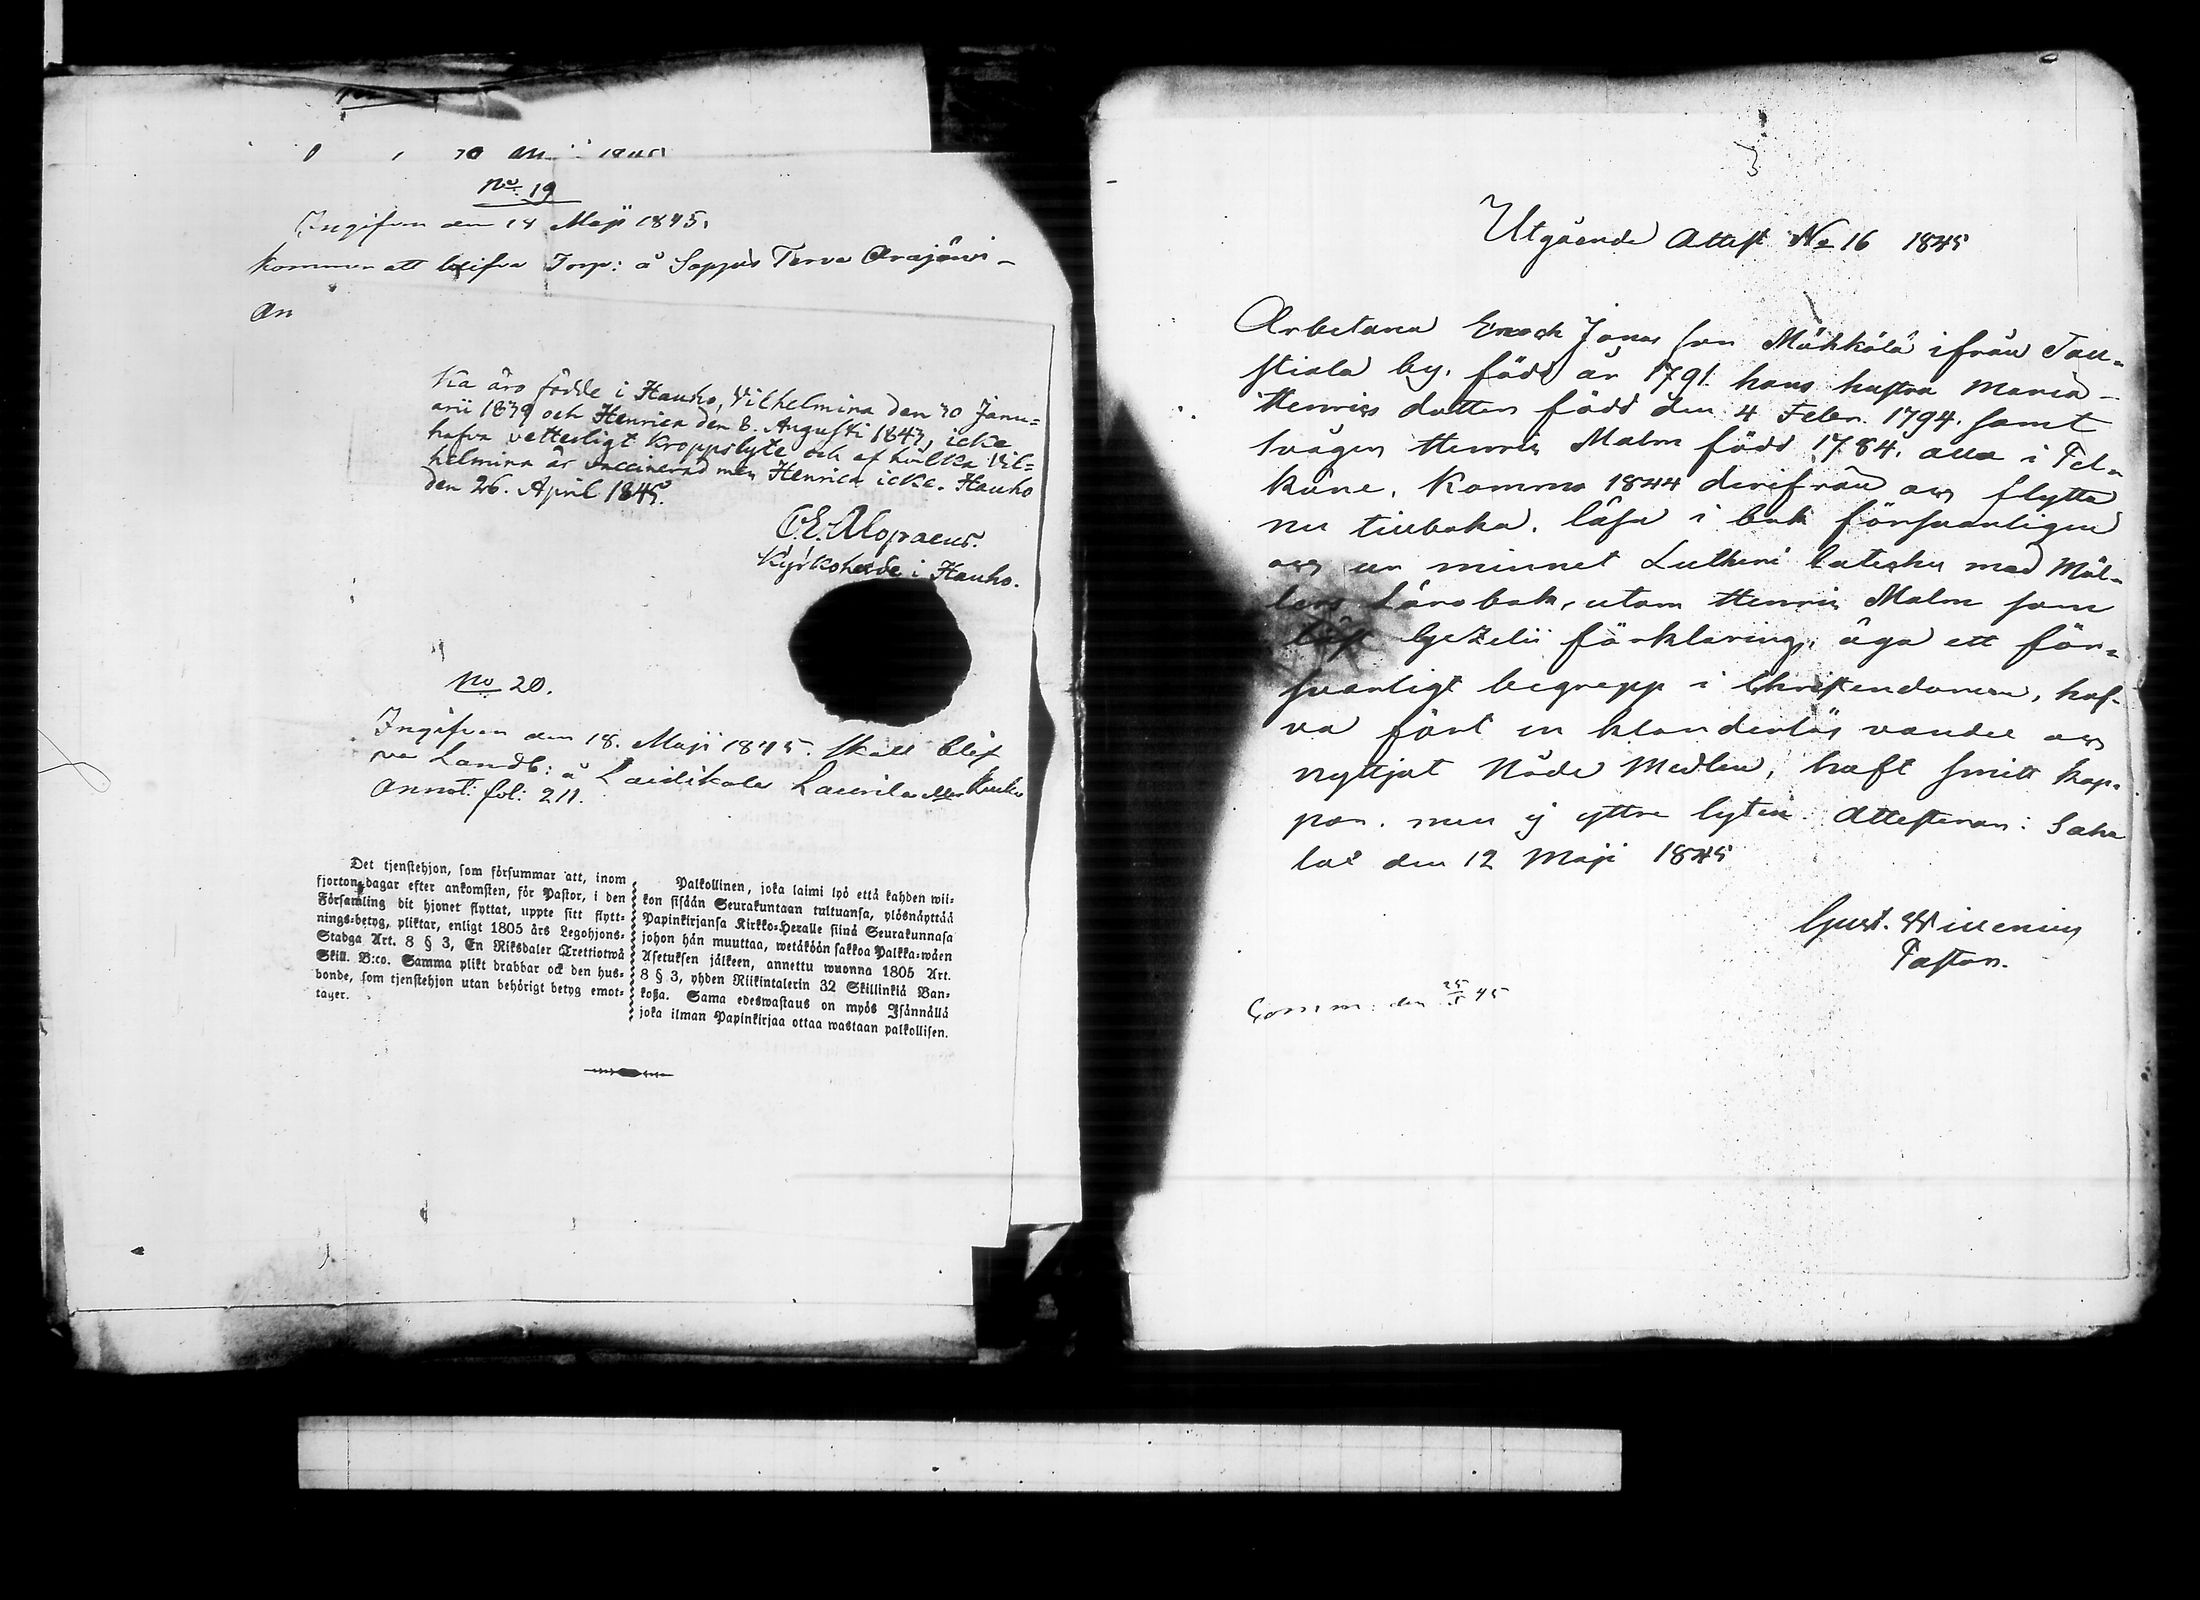 No. 19
Ingifven den 18 Maji 1845.
Kommer att blifva Torp: å Sappis Terva Arajärvi
An
ka äro födde i Hauho, Vilhelmina den 30 Janu-
arii 1839 och Henrica den 8. Augusti 1843, icke
hafva vetterligt Kroppslyte och af hvilka Vil-
helmina är vaccinerad men Henrica icke. Hauho
den 26. April 1845.
C.E. Alopraeus.
Kyrkoherde i Hauho.
No 20.
Ingifven den 18. Maji 1845. skall blif
va Landb: å Laidikala Laurila eller
Annot: fol: 211.
Det tjenstehjon, som försummar att, inom
fjorton dagar efter ankomsten, för Pastor, i den
Församling dit hjonet flyttat, uppte sitt flytt-
nings-betyg, pliktar, enligt 1805 års Legohjons-
Stadga Art. 8 § 3, En Riksdaler Trettiotwå
Skill. B:co. Samma plikt drabbar ock den hus-
bonde, som tjenstehjon utan behörigt betyg emot-
tager.
Palkollinen, joka laimi lyö että kahden wii-
kon sisään Seurakuntaan tultuansa, ylösnäyttää
Papinkirjansa Kirkko-Heralle siinä Seurakunnasa
johon hän muuttaa, wetäköön sakkoa Palkka-wäen
Asetuksen jälkeen, annettu wuonna 1805 Art.
8 § 3, yhden Riikintalerin 32 Skillinkiä Ban-
kosa. Sama edeswastaus on myös Isännällä
joka ilman Papinkirjaa ottaa wastaan palkollisen.
Utgående Attest No 16 1845
Arbetaren Enoch Jonas son Mäkkölä ifrån Tau-
stiala by. född år 1791. hans hustru Maria
Henrics dotter född den 4 Febr. 1794. samt
svågern Henric Malm född 1784. alla i Pel-
käne. Komma 1844 derifrån och flytta
nu tillbaka. läsa i bok försvarligen
och ur minnet Lutheri Cateches med Möl-
lers Lärobok, utom Henric Malm som
läst Gezelii förklaring, äga ett för-
svarligt begrepp i Christendomen, haf-
va fört en klanderlös vandel och
nyttjat Nåde Medlen, haft smitt kop-
por. men ej yttre lyten. Attesteran: Saha
lax den 12 Maji 1845
Gust. Willenius
Pastor.
Comm: den 25/5 45